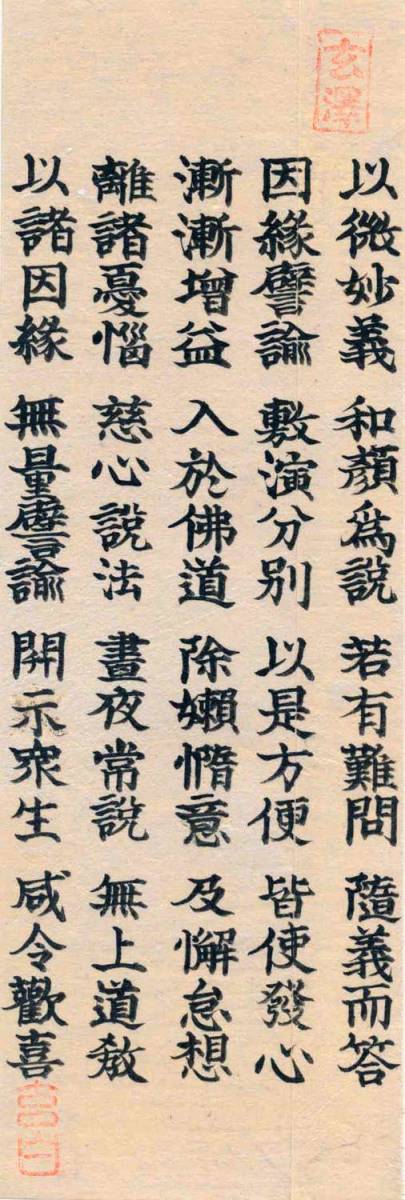 玄澤
以微妙義 和顏爲說 若有難問 隨義而答
因緣譬諭 敷演分別 以是方便 皆使發心
漸漸增益 入於佛道 除嬾惰意 及懈怠想
離諸憂惱 慈心說法 晝夜常說 無上道教
以諸因緣 無量譬諭 開示眾生 咸令歡喜